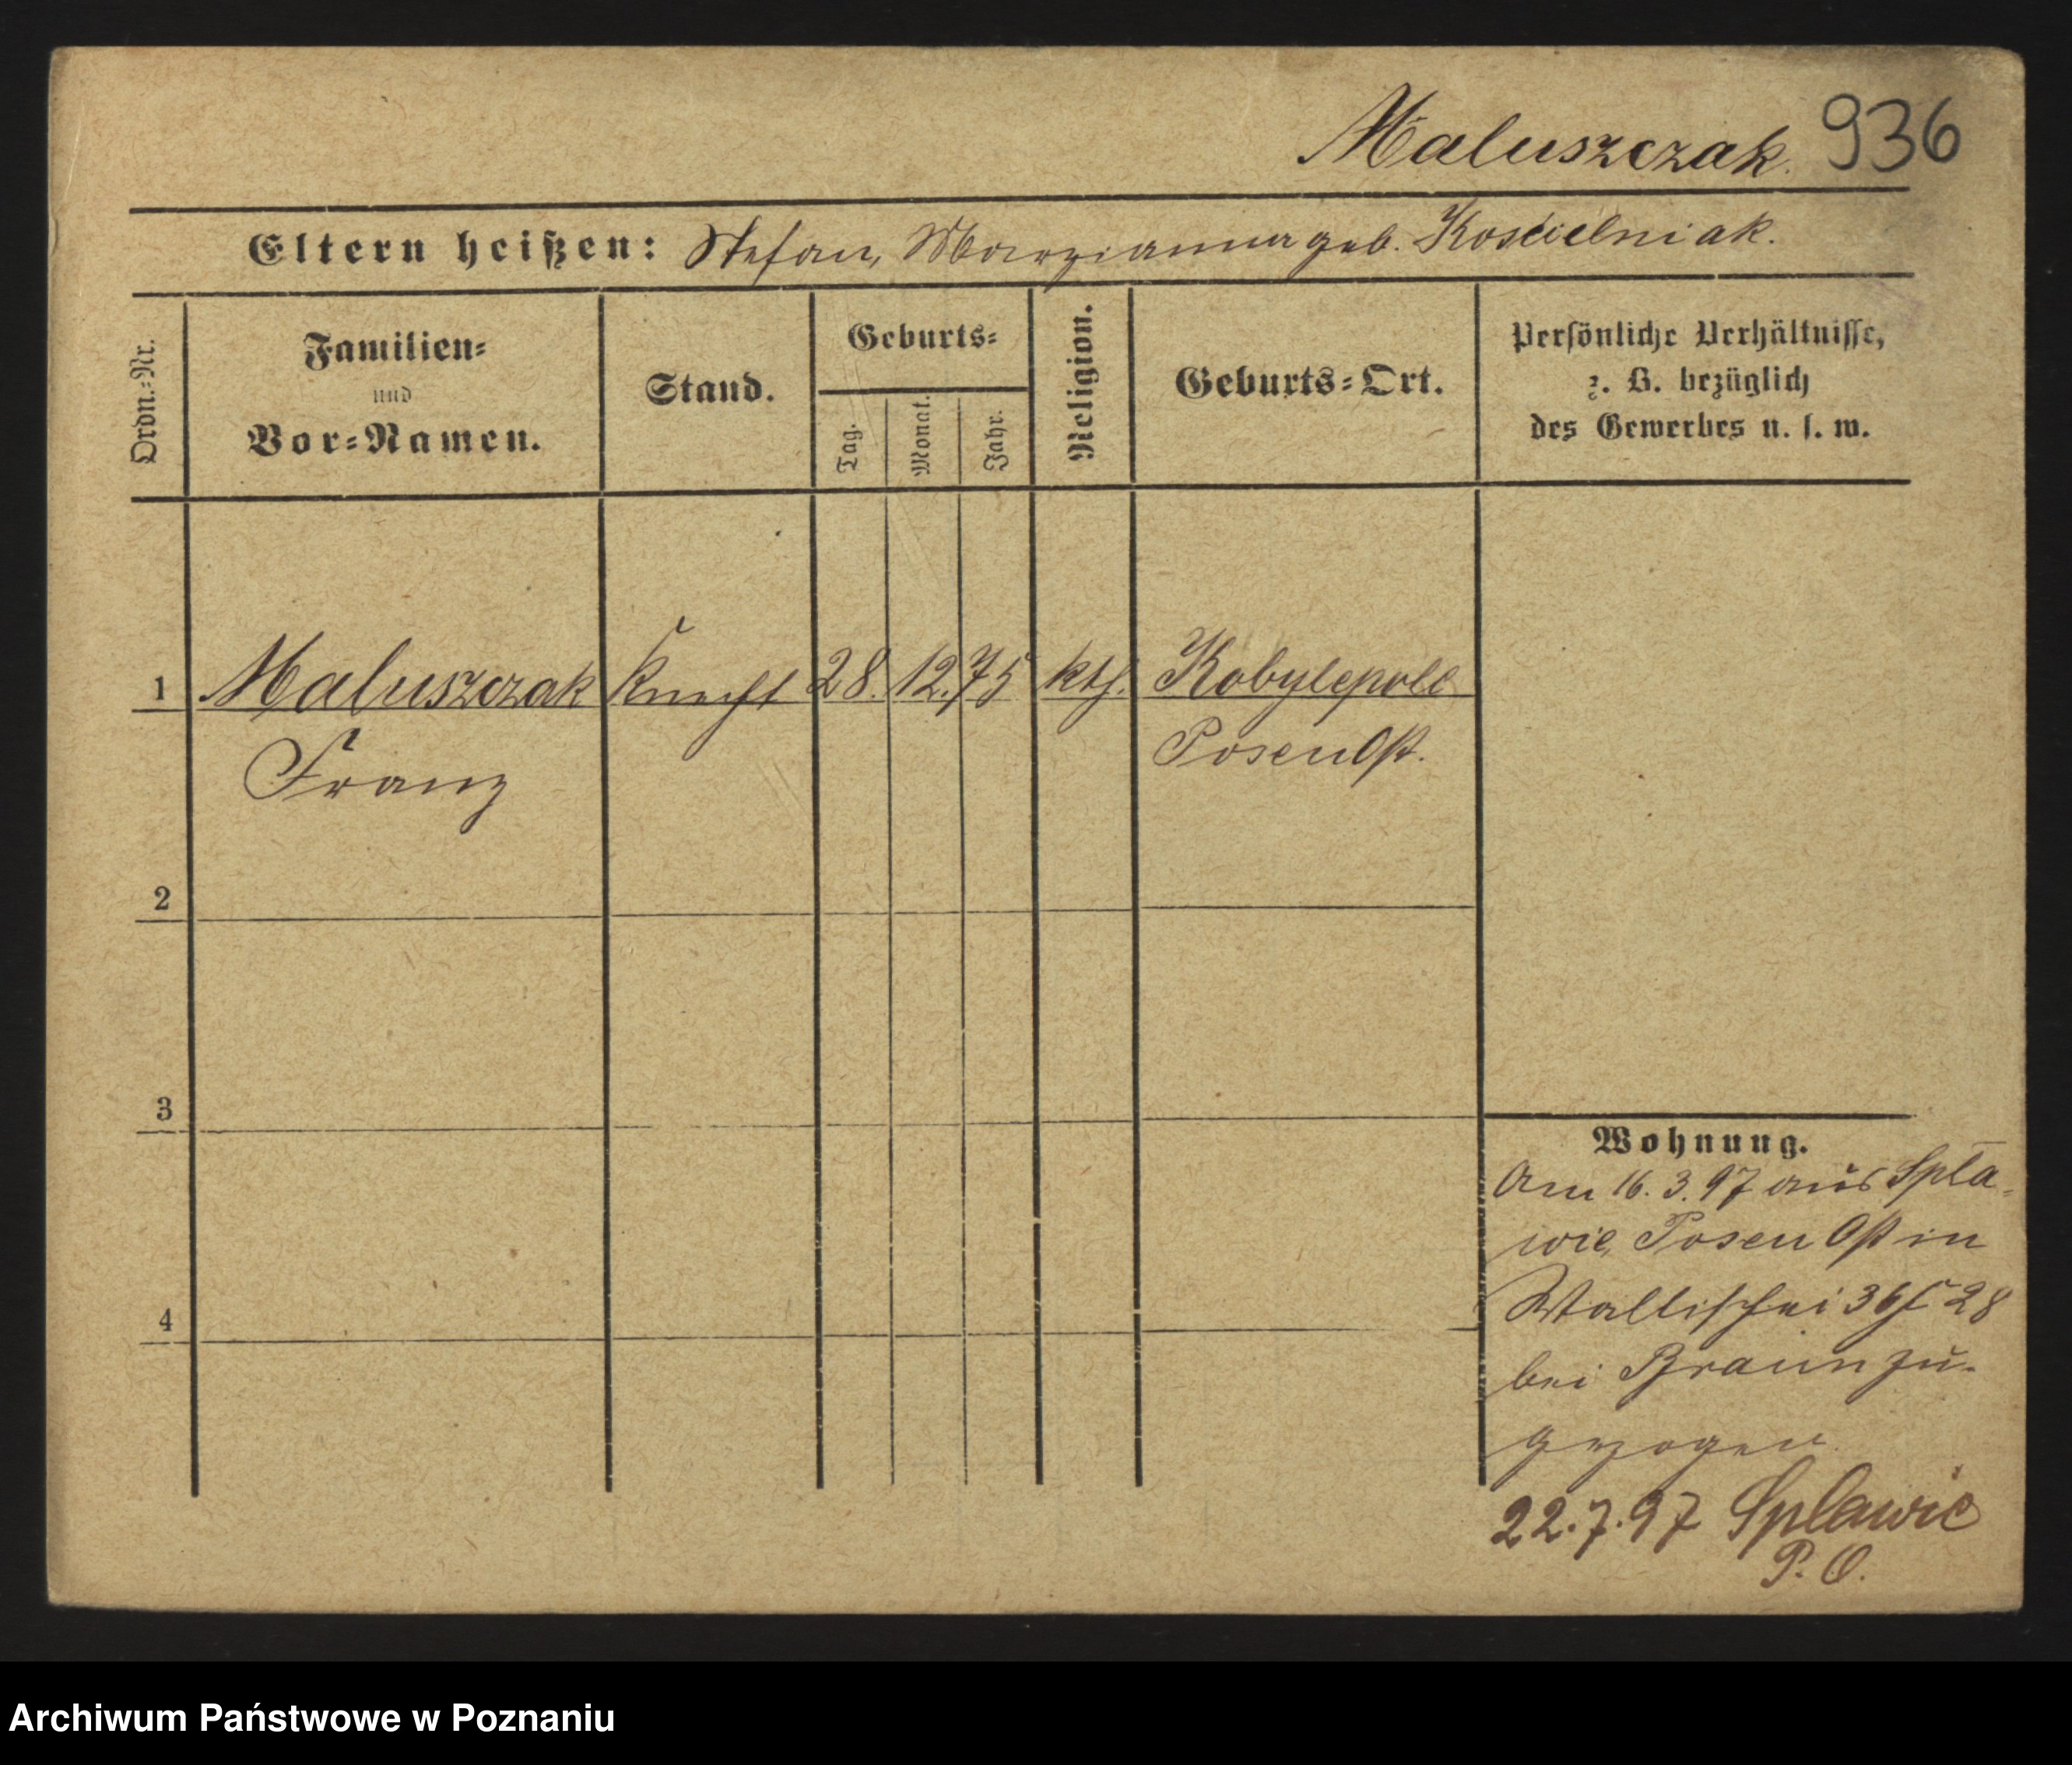 Maluszczak. 936
Eltern heißen: Stefan, Marzianna geb. Koscielniak.
Ordn.=Nr.
Familien=
und
Vor=Namen.
Stand.
Geburts=
Tag.
Monat.
Jahr.
Religion.
Geburts=Ort.
Persönliche Verhältnisse,
z. B. bezüglich
des Gewerbes u. s. w.
1 Maluszczak Knecht 28. 12. 75 kth. Kobylepole
Franz Posen Ost.
2
3
4
Wohnung.
Am 16. 3. 97 aus Spla-
wie, Posen Ost in
Wallischei 36/ 28
bei Braun zu-
gezogen.
22.7.97 Splawie
P. O.
Archiwum Państwowe w Poznaniu